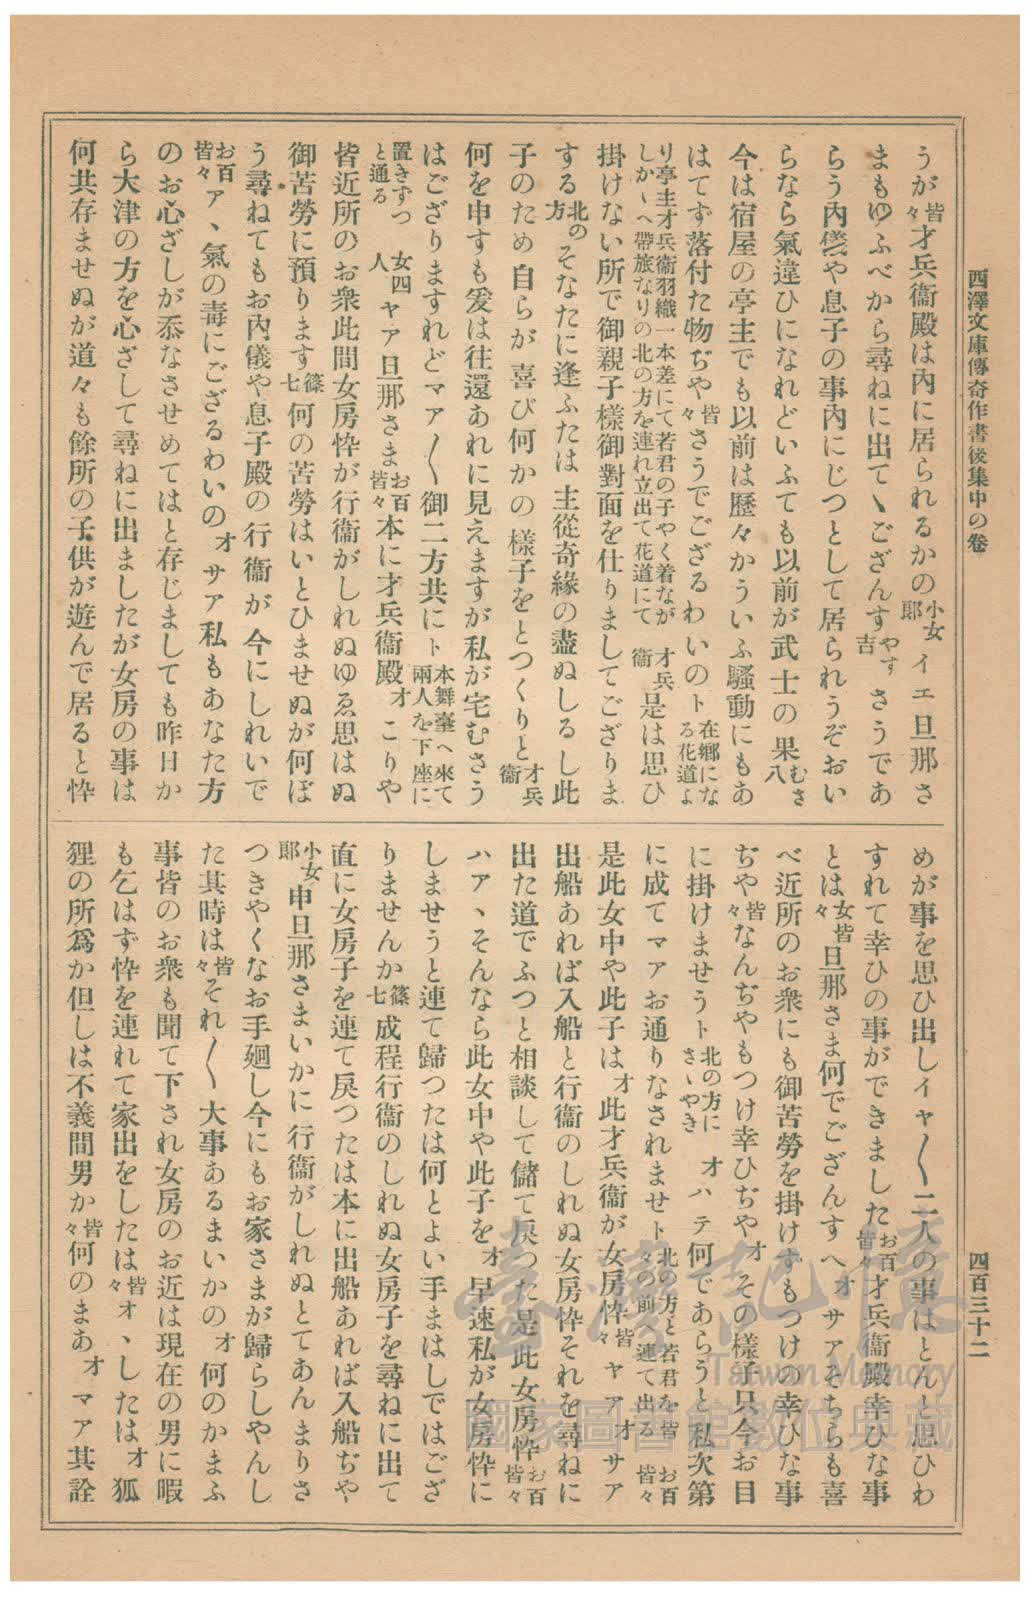 西澤文庫傳奇作書後集中の卷
四百三十二
うが皆々才兵衞殿は內に居られるかの小女郎イエ旦那さ
まもゆふべから尋ねに出てヽござんすやす吉さうであ
らう內儀や息子の事內にじつとして居られうぞおい
らなら氣違ひになれどいふても以前が武士の果むさ八
今は宿屋の亭主でも以前は歷々かういふ騷動にもあ
はてず落付た物ぢや皆々さうでござるわいのト在鄕になる花道よ
り亭主才兵衞羽織一本差にて若君の子やく着なが
しかヽへ帶旅なりの北の方を連れ立出て花道にて才兵衞是は思ひ
掛けない所で御親子樣御對面を仕りましてござりま
する北の方そなたに逢ふたは主從奇緣の盡ぬしるし此
子のため自らが喜び何かの樣子をとつくりと才兵衞
何を申すも爰は往還あれに見えますが私が宅むさう
はござりますれどマア〱御二方共にト本舞臺へ來て兩人を下座に
置きずつと通る女四人ヤア旦那さまお百皆々本に才兵衞殿オこりや
皆近所のお衆此間女房悴が行衞がしれぬゆゑ思はぬ
御苦勞に預ります篠七何の苦勞はいとひませぬが何ぼ
う尋ねてもお內儀や息子殿の行衞が今にしれいで
お百皆々アヽ氣の毒にござるわいのオサア私もあなた方
のお心ざしが忝なさせめてはと存じましても昨日か
ら大津の方を心ざして尋ねに出ましたが女房の事は
何共存ませぬが道々も餘所の子供が遊んで居ると悴
めが事を思ひ出しイヤ〱二人の事はとんと思ひわ
すれて幸ひの事ができましたお百皆々才兵衞殿幸ひな事
とは女皆々旦那さま何でござんすへオサアそちらも喜
べ近所のお衆にも御苦勞を掛けずもつけの幸ひな事
ぢや皆々なんぢやもつけ幸ひぢやオその樣子只今お目
に掛けませうト北の方にさヽやきオハテ何であらうと私次第
に成てマアお通りなされませト北の方と若君を皆々の前へ連て出るお百皆々
是此女中や此子はオ此才兵衞が女房悴皆々ヤアオサア
出船あれば入船と行衞のしれぬ女房悴それを尋ねに
出た道でふつと相談して儲て戾つた是此女房悴お百皆々
ハアヽそんなら此女中や此子をオ早速私が女房悴に
しませうと連て歸つたは何とよい手まはしではござ
りませんか篠七成程行衞のしれぬ女房子を尋ねに出て
直に女房子を連て戾つたは本に出船あれば入船ぢや
小女郎申旦那さまいかに行衞がしれぬとてあんまりさ
つきやくなお手廻し今にもお家さまが歸らしやんし
た其時は皆々それ〱大事あるまいかのオ何のかまふ
事皆のお衆も聞て下され女房のお近は現在の男に暇
も乞はず悴を連れて家出をしたは皆々オヽしたはオ狐
狸の所爲か但しは不義間男か皆々何のまあオマア其詮
臺灣記憶
Taiwan Memory
國家圖書館數位典藏